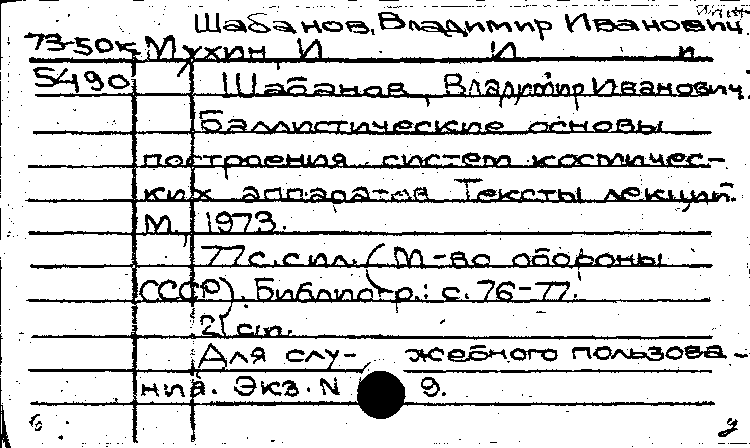 Шабанов, Владимир Иванович
73-50к Мухин, И И и
5490 Шабанов, Владимир Иванович.
Баллистические основы
построения систем космичес-
ких аппаратов. Тексты лекций.
М., 1973.
77 с. с ил. (М-во обороны
СССР). Библиогр.: с. 76-77.
21 см.
Для слу- жебного пользова-
ния. Экз. N 9.
б